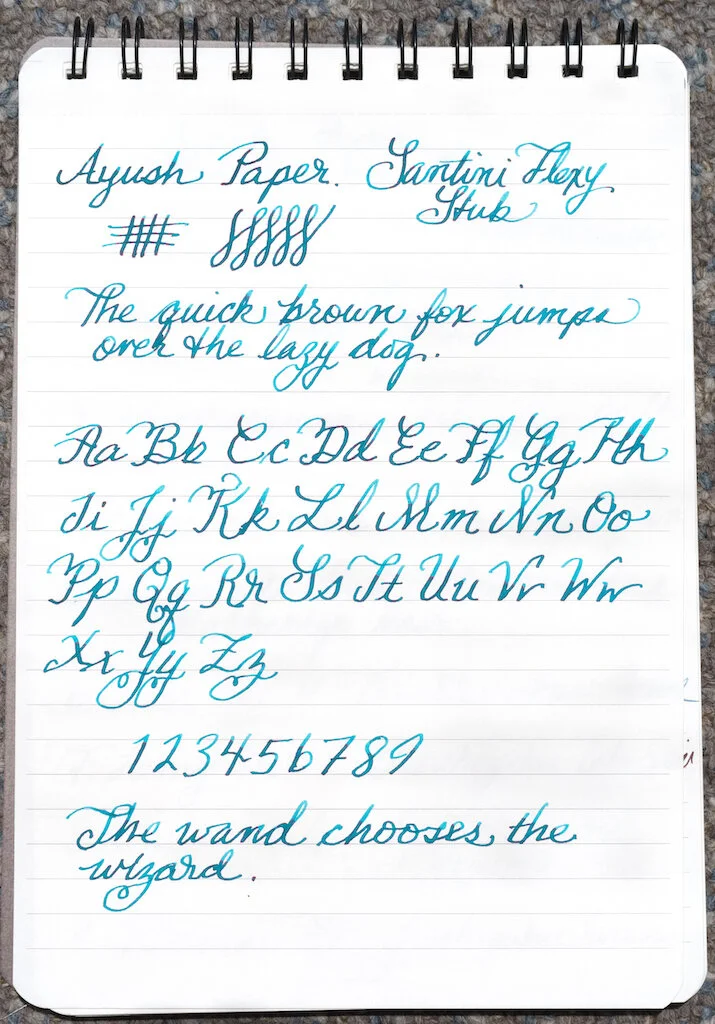 Ayush Paper. Santini Flexy
Stub
The quick brown fox jumps
over the lazy dog.
Aa Bb Cc Dd Ee Ff Gg Hh
Ii Jj Kk Ll Mm Nn Oo
Pp Qq Rr Ss Tt Uu Vv Ww
Xx Yy Zz
123456789
The wand chooses the
wizard.